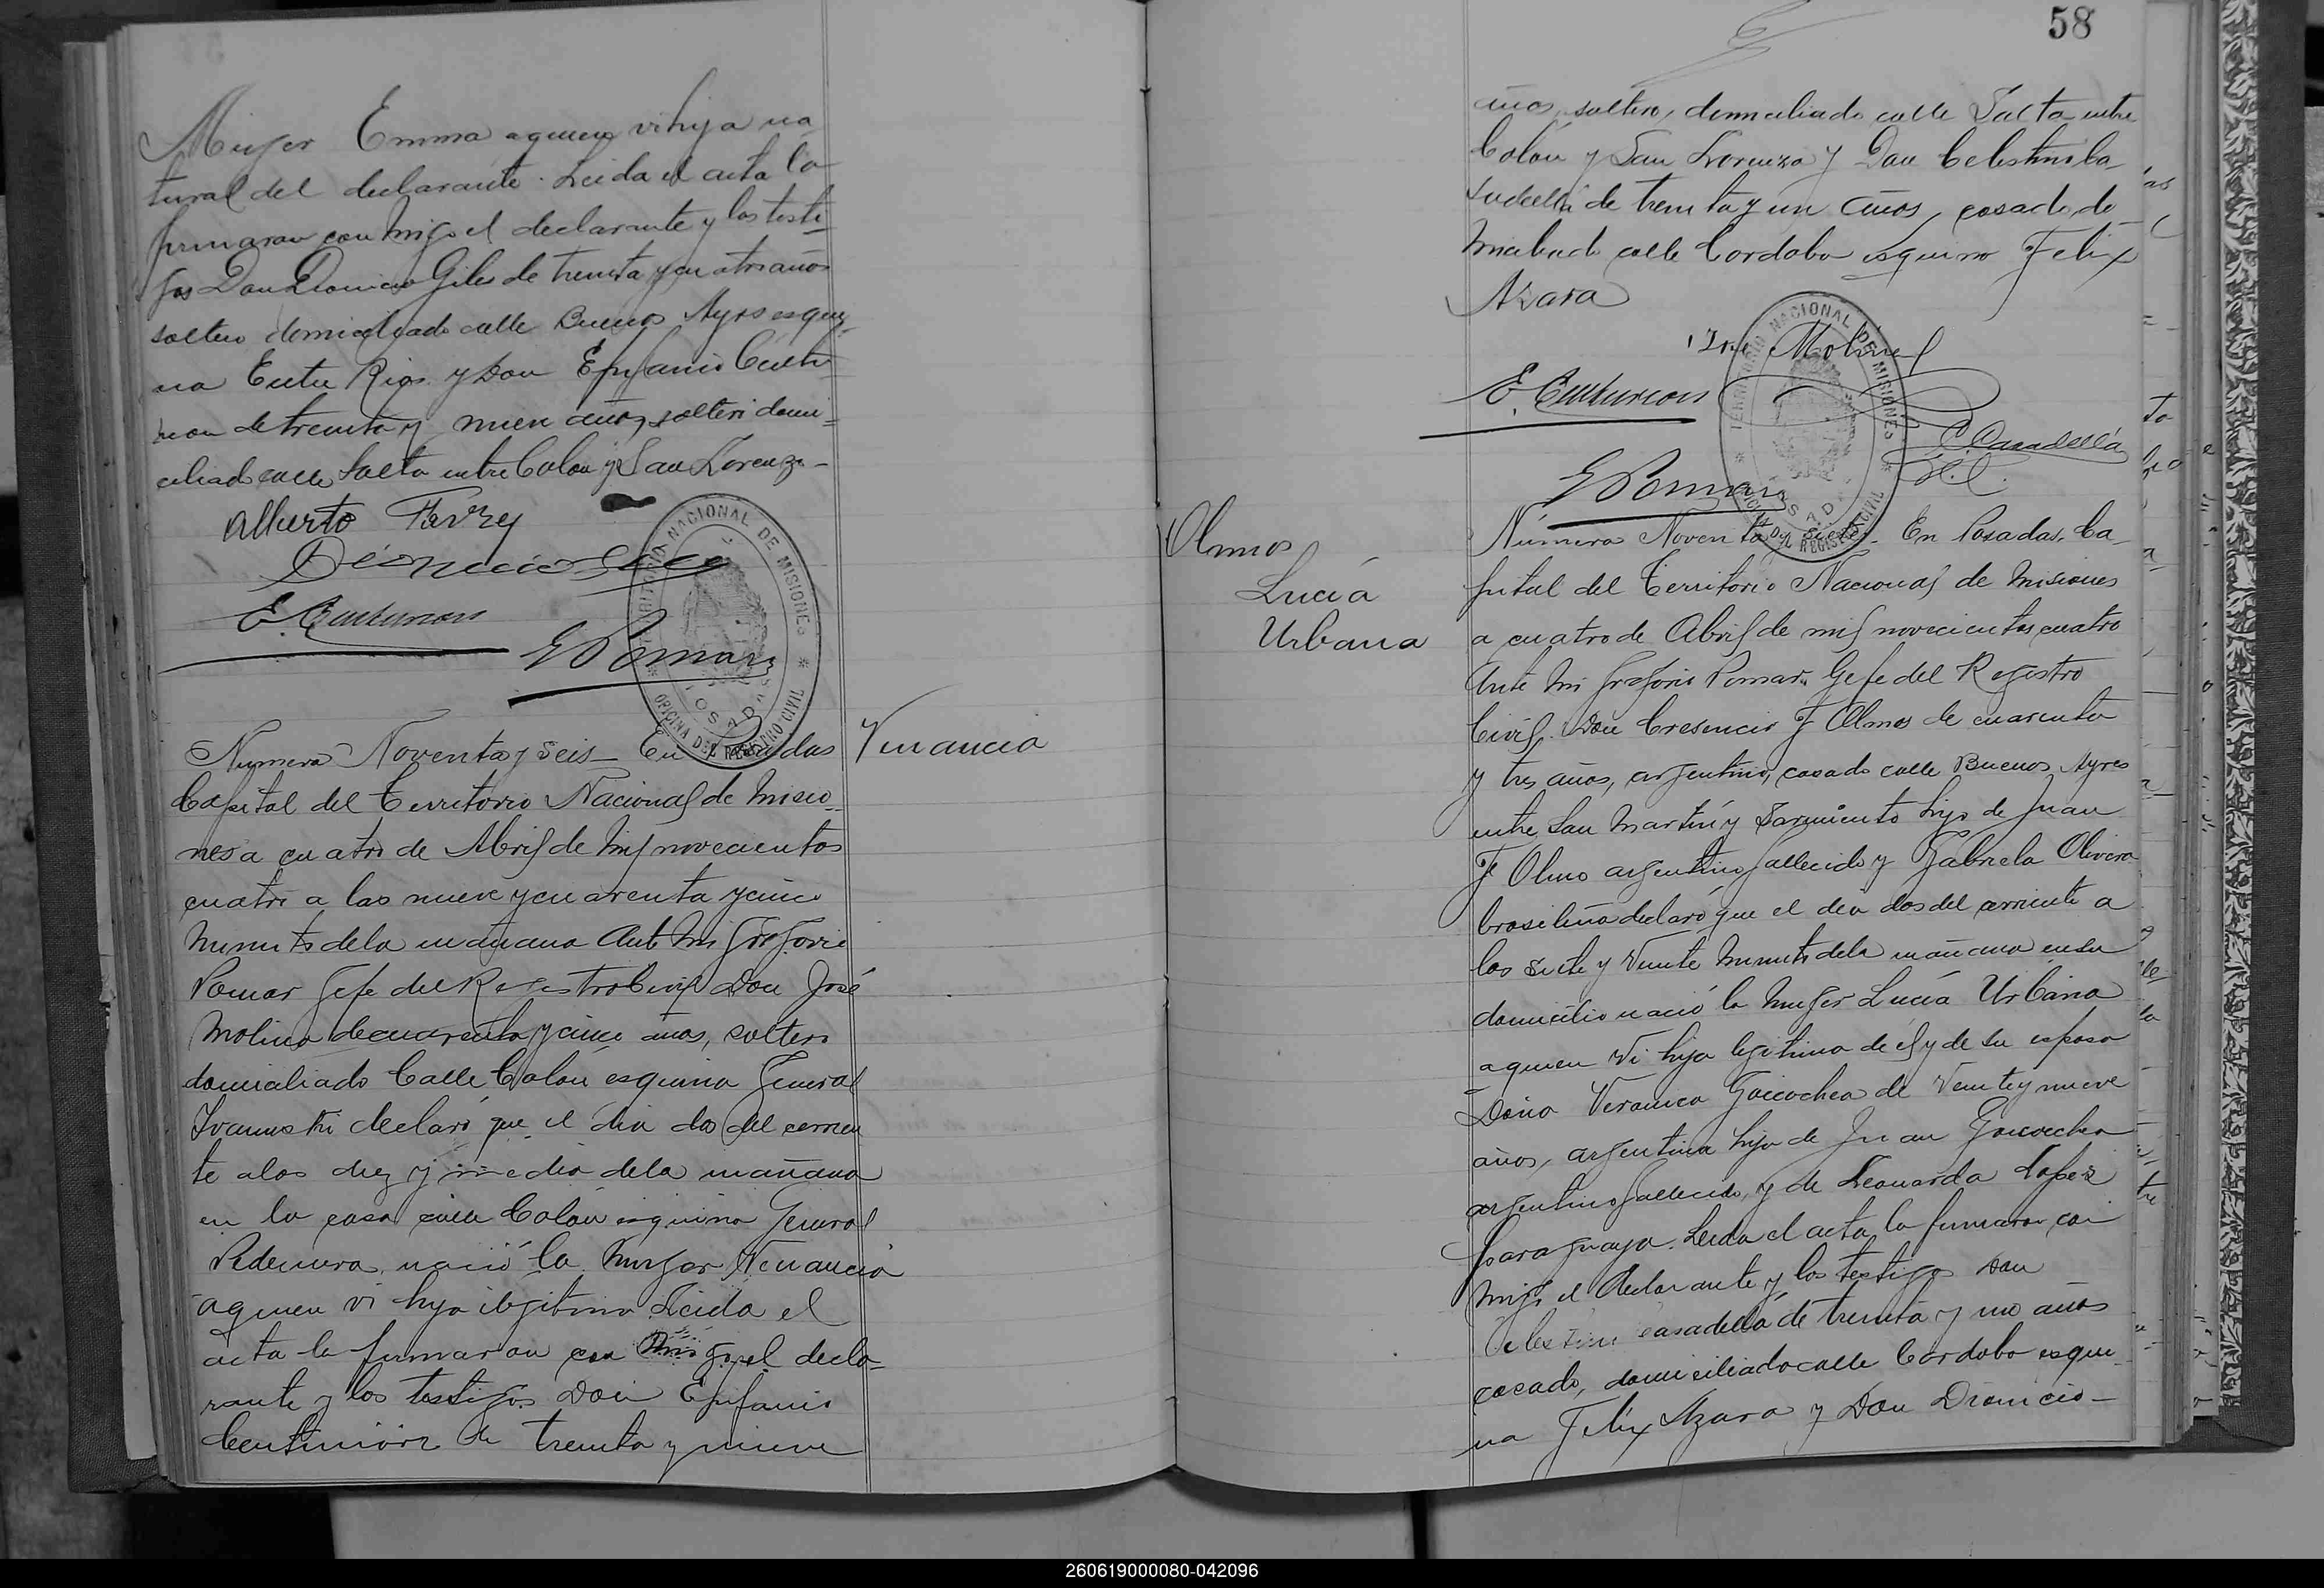 Mujer Emma a quien vi hija na
tural del declarante. Leida el acta la
firmaron con migo el declarante y los testi=
gos Don Dionicio Giles de treinta y cuatro años
soltero domiciliado calle Buenos Ayres esqui=
na Entre Rios y Don Epifanio Centu
rion de treinta y nueve años, soltero domi=
ciliado calle Salta entre Colon y San Lorenzo-
Alberto Favrey
Dionicio
E. Centurion
G Pomar
TERRITORIO NACIONAL DE MISIONES
POSADAS
OFICINA DEL REGISTRO CIVIL
Numero Noventa y seis- En Posadas
Venancia
Capital del Territorio Nacional de Misio=
nes a cuatro de Abril de mil novecientos
cuatro a las nueve y cuarenta y cinco
minuts de la mañana Ante mi Gregorio
Pomar Gefe del Registro Civil Don José
Molina de cuarenta y cinco años, soltero
domiciliado Calle Colón esquina General
declaró que el dia dos del corrien
te a las diez y media de la mañana
en la casa calle Colón esquina General
Pedernera nació la mujer Venancia
a quien vi hija ilegitima Leida el
acta la firmaron con migo el decla=
rante y los testigos Don Epifanio
Centurión de treinta y nueve
58
años, soltero, domiciliado calle Salta entre
Colón y San Lorenzo y Don Celestino Ca-
sadellá de treinta y un años, casado, do-
miciliado calle Cordoba esquina Felix
Azara
José Molina
E. Centurion
C. Casadellá
G Pomar
TERRITORIO NACIONAL DE MISIONES
POSADAS
OFICINA DEL REGISTRO CIVIL
Olmos
Lucía
Urbana
Número Noventa y Siete. En Posadas, Ca-
pital del Territorio Nacional de Misiones
a cuatro de Abril de mil novecientos cuatro
Ante mi Gregorio Pomar, Gefe del Registro
Civil. Don Cresencio F Olmos de cuarenta
y tres años, argentino, casado calle Buenos Ayres
entre San Martín y Sarmiento hijo de Juan
F Olmo argentino fallecido y Gabriela Olivera
brasileña declaró que el dia dos del corriente a
las siete y veinte minuts de la mañana en su
domicilio nació la mujer Lucía Urbana
a quien vi hija legitima de él y de su esposa
Doña Veronica Goicochea de veinte y nueve
años, argentina hija de Juan Goicochea
argentino fallecido, y de Leonarda Lopez
paraguaya. Leida el acta la firmaron con
migo el declarante y los testigos Don
Celestino Casadellá de treinta y uno años
casado, domiciliado calle Cordoba esqui-
na Felix Azara y Don Dionicio-
260619000080-042096